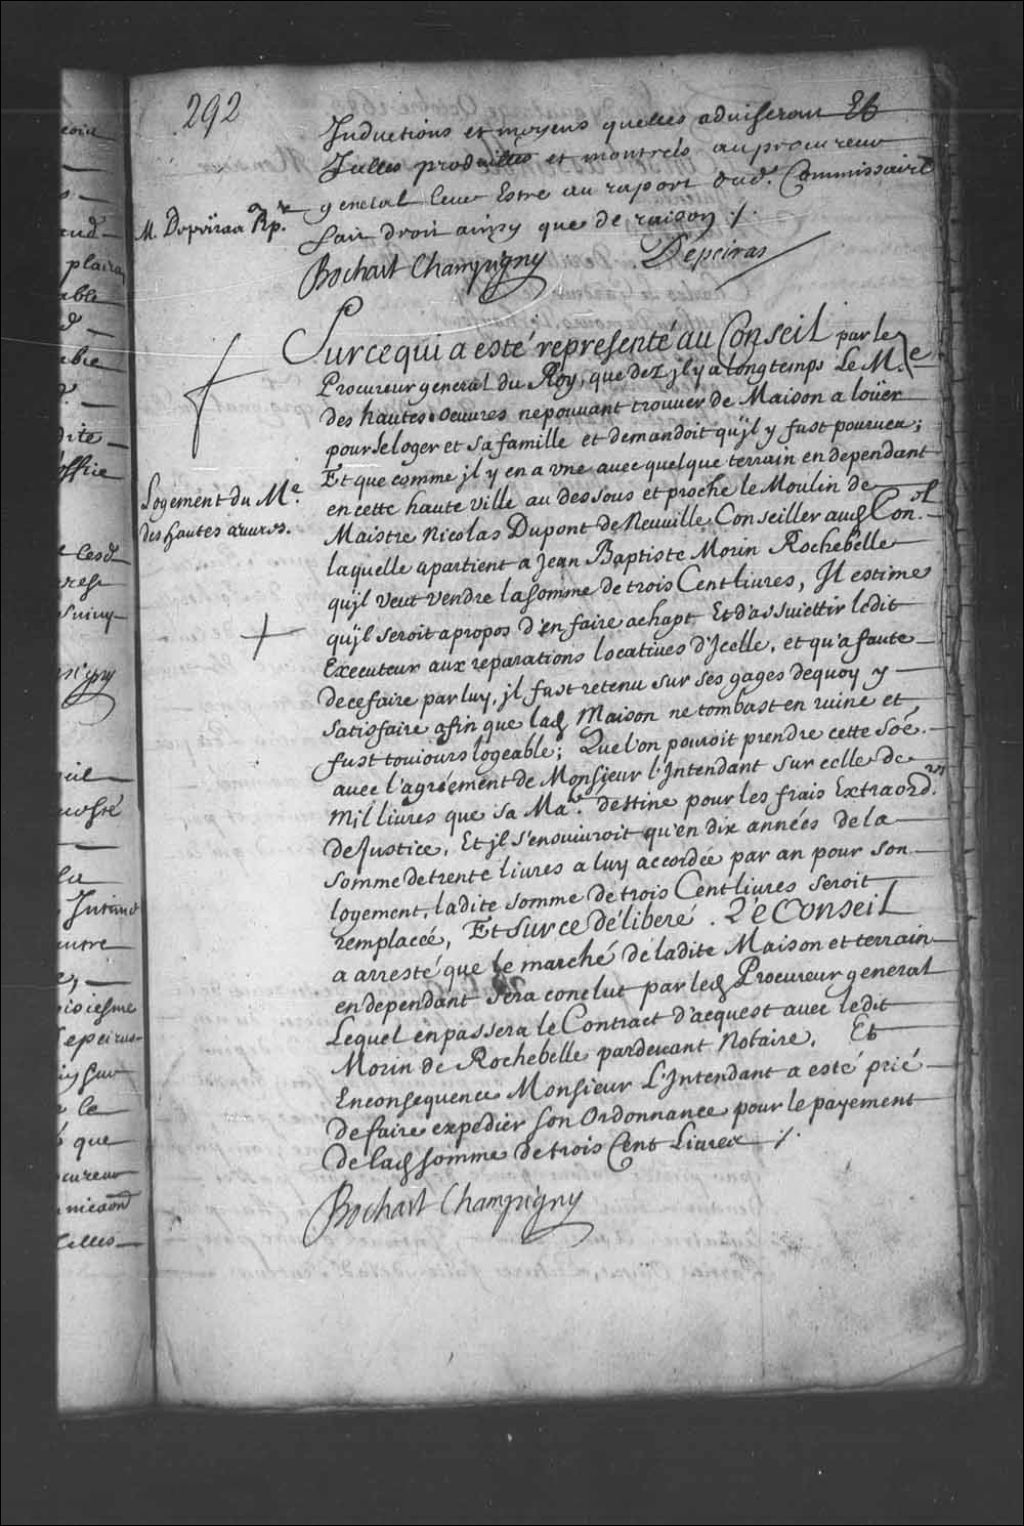 292
Inductions et moyens quelles aduiseront Et
Icelles produittes et montrées au procureur
general leur Estre au raport dud. Commissaire
M. Depeiras Rp.r
fait droit ainsy que de raison ./.
Bochart Champigny Depeiras
Sur ce qui a esté representé au Conseil par le
Procureur general du Roy, que dez jl y a longtemps Le M.e
des hautes oeuures ne pouuant trouuer de Maison a loüer
pour se loger et sa famille et demandoit qu'jl y fust pourueu;
Et que comme jl y en a vne auec quelque terrain en dependant
en cette haute ville au dessous et proche le Moulin de
Logement du M.e
des hautes œuures.
Maistre Nicolas Dupont de Neuuille Conseiller aud Con.el
laquelle apartient a Jean Baptiste Morin Rochebelle
qu'jl veut vendre la somme de trois Cent liures, Jl estime
qu'jl seroit apropos d'en faire achapt Et d'assuiettir ledit
Executeur aux reparations locatiues d'Jcelle, et qu'a faute
de ce faire par luy, jl fust retenu sur ses gages dequoy y
satisfaire afin que lad Maison ne tombast en ruine et
fust touiours logeable; Que l'on pouroit prendre cette soe.
auec l'agréement de Monsieur l'Intendant sur celle de
mil liures que sa Ma.té destine pour les frais Extraord.res
de Justice, Et jl s'ensuiuroit qu'en dix années de la
somme de trente liures a luy accordée par an pour son
logement, ladite somme de trois Cent liures seroit
remplacée, Et sur ce déliberé. Le Conseil
a arresté que le marché de ladite Maison et terrain
en dependant sera conclut par led Procureur general
Lequel en passera le Contract d'acquest auec ledit
Morin de Rochebelle pardeuant Notaire. Et
En consequence Monsieur L'Intendant a esté prié
de faire expedier son Ordonnance pour le payement
de lad somme de trois Cent Liures ./.
Bochart Champigny